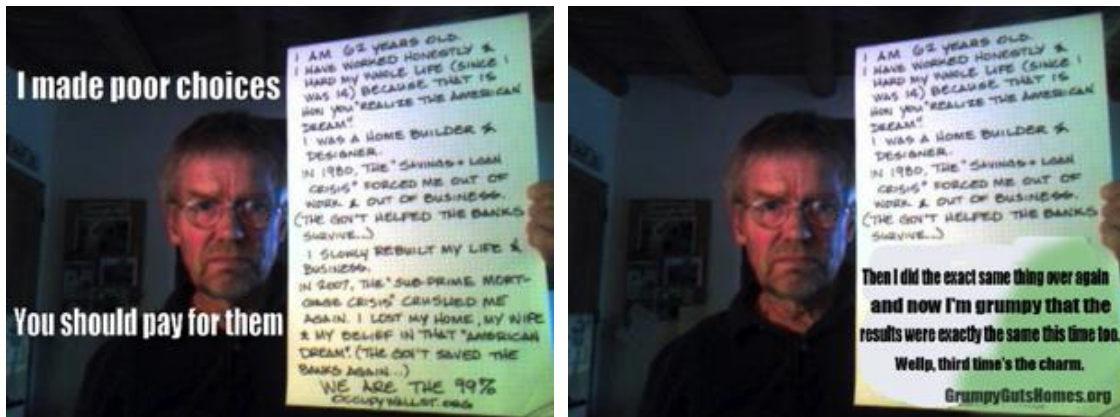 I made poor choices
You should pay for them
I AM 62 YEARS OLD.
I HAVE WORKED HONESTLY &
HARD MY WHOLE LIFE (SINCE I
WAS 14) BECAUSE THAT IS
HOW YOU "REALIZE THE AMERICAN
DREAM".
I WAS A HOME BUILDER &
DESIGNER.
IN 1980, THE "SAVINGS + LOAN
CRISIS" FORCED ME OUT OF
WORK & OUT OF BUSINESS.
(THE GOV'T HELPED THE BANKS
SURVIVE...)
I SLOWLY REBUILT MY LIFE &
BUSINESS.
IN 2007, THE "SUB-PRIME MORT-
GAGE CRISIS" CRUSHED ME
AGAIN. I LOST MY HOME, MY WIFE
& MY BELIEF IN THAT "AMERICAN
DREAM". (THE GOV'T SAVED THE
BANKS AGAIN...)
WE ARE THE 99%
OCCUPYWALLST.ORG
I AM 62 YEARS OLD.
I HAVE WORKED HONESTLY &
HARD MY WHOLE LIFE (SINCE I
WAS 14) BECAUSE THAT IS
HOW YOU "REALIZE THE AMERICAN
DREAM".
I WAS A HOME BUILDER &
DESIGNER.
IN 1980, THE "SAVINGS + LOAN
CRISIS" FORCED ME OUT OF
WORK & OUT OF BUSINESS.
(THE GOV'T HELPED THE BANKS
SURVIVE...)
Then I did the exact same thing over again
and now I'm grumpy that the
results were exactly the same this time too.
Wellp, third time's the charm.
GrumpyGutsHomes.org